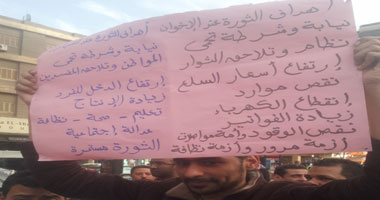 أهداف الثورة عند الإخوان
نيابة وشرطة تحمي
نظام وتلاحق الثوار
إرتفاع أسعار السلع
نقص موارد
إنقطاع الكهرباء
زيادة الفواتير
نقص الوقود وأزمة مواصلات
أزمة مرور وأزمة نظافة
أهداف الثورة
نيابة وشرطة تحمي
المواطن وتلاحق المفسدين
إرتفاع الدخل للفرد
زيادة الإنتاج
تعليم - صحة - نظافة
عدالة إجتماعية
الثورة مستمرة